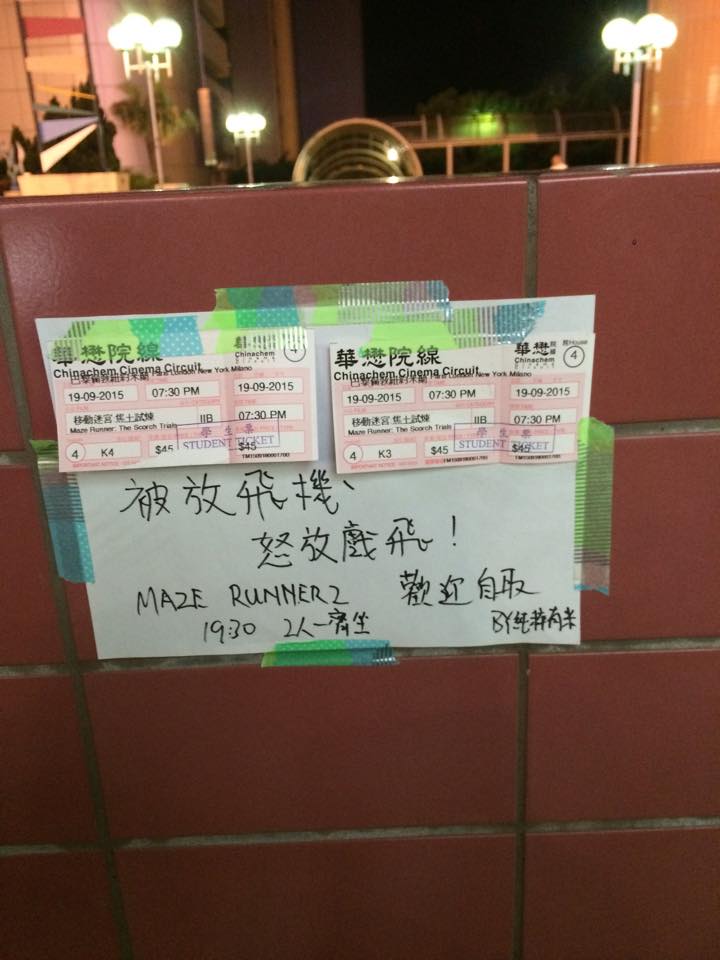 華懋院線
Chinachem Cinema Circuit
Chinachem
4
巴黎倫敦紐約米蘭 Paris London New York Milano
19-09-2015
07:30 PM
19-09-2015
移動迷宮 焦土試煉
IIB
07:30 PM
Maze Runner: The Scorch Trials
學生票
STUDENT TICKET
4
K4
$45
$45
華懋院線
Chinachem Cinema Circuit
華懋
院線
院House
4
Paris London New York Milano
19-09-2015
07:30 PM
19-09-2015
移動迷宮 焦土試煉
IIB
07:30 PM
Maze Runner: The Scorch Trials
學生票
STUDENT TICKET
4
K3
$45
$45
被放飛機、
怒放戲飛！
MAZE RUNNER2 歡迎自取
19:30 2人一齊坐 BY純粹有米